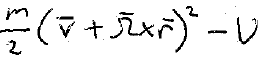 m/2 (v̄ + Ω̄ x r̄)² - U